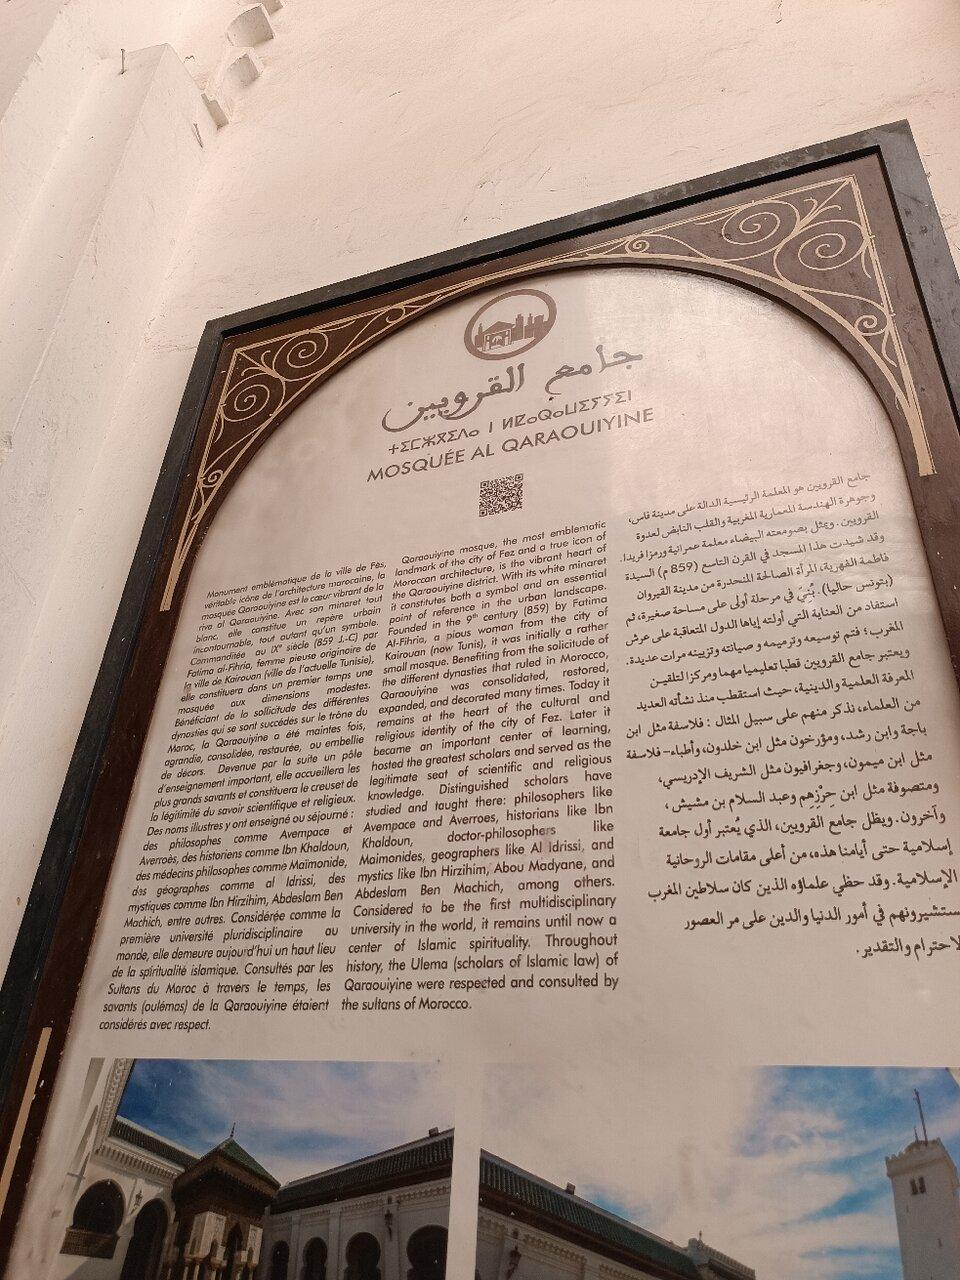 جامع القرويين
ⵜⵉⵎⵣⴳⵉⴷⴰ ⵏ ⵍⵇⴰⵕⴰⵡⵉⵢⵢⵉⵏ
MOSQUÉE AL QARAOUIYINE
Monument emblématique de la ville de Fès,
véritable icône de l'architecture marocaine, la
mosquée Qaraouiyine est le cœur vibrant de la
rive al Qaraouiyine. Avec son minaret tout
blanc, elle constitue un repère urbain
incontournable, tout autant qu'un symbole.
Commanditée au IXe siècle (859 J.-C) par
Fatima al-Fihria, femme pieuse originaire de
la ville de Kairouan (ville de l'actuelle Tunisie),
elle constituera dans un premier temps une
mosquée aux dimensions modestes.
Bénéficiant de la sollicitude des différentes
dynasties qui se sont succédés sur le trône du
Maroc, la Qaraouiyine a été maintes fois,
agrandie, consolidée, restaurée, ou embellie
de décors. Devenue par la suite un pôle
d'enseignement important, elle accueillera les
plus grands savants et constituera le creuset de
la légitimité du savoir scientifique et religieux.
Des noms illustres y ont enseigné ou séjourné :
des philosophes comme Avempace et
Averroès, des historiens comme Ibn Khaldoun,
des médecins philosophes comme Maïmonide,
des géographes comme al Idrissi, des
mystiques comme Ibn Hirzihim, Abdeslam Ben
Machich, entre autres. Considérée comme la
première université pluridisciplinaire au
monde, elle demeure aujourd'hui un haut lieu
de la spiritualité islamique. Consultés par les
Sultans du Maroc à travers le temps, les
savants (oulémas) de la Qaraouiyine étaient
considérés avec respect.
Qaraouiyine mosque, the most emblematic
landmark of the city of Fez and a true icon of
Moroccan architecture, is the vibrant heart of
the Qaraouiyine district. With its white minaret
it constitutes both a symbol and an essential
point of reference in the urban landscape.
Founded in the 9th century (859) by Fatima
Al-Fihria, a pious woman from the city of
Kairouan (now Tunis), it was initially a rather
small mosque. Benefiting from the solicitude of
the different dynasties that ruled in Morocco,
Qaraouiyine was consolidated, restored,
expanded, and decorated many times. Today it
remains at the heart of the cultural and
religious identity of the city of Fez. Later it
became an important center of learning,
hosted the greatest scholars and served as the
legitimate seat of scientific and religious
knowledge. Distinguished scholars have
studied and taught there: philosophers like
Avempace and Averroes, historians like Ibn
Khaldoun, doctor-philosophers like
Maimonides, geographers like Al Idrissi, and
mystics like Ibn Hirzihim, Abou Madyane, and
Abdeslam Ben Machich, among others.
Considered to be the first multidisciplinary
university in the world, it remains until now a
center of Islamic spirituality. Throughout
history, the Ulema (scholars of Islamic law) of
Qaraouiyine were respected and consulted by
the sultans of Morocco.
جامع القرويين هو المعلمة الرئيسية الدالة على مدينة فاس،
وجوهرة الهندسة المعمارية المغربية والقلب النابض لعدوة
القرويين. ويمثل بصومعته البيضاء معلمة عمرانية ورمزا فريدا.
وقد شيدت هذا المسجد في القرن التاسع (859 م) السيدة
فاطمة الفهرية، المرأة الصالحة المنحدرة من مدينة القيروان
(بتونس حاليا). بُنِيَ في مرحلة أولى على مساحة صغيرة، ثم
استفاد من العناية التي أولته إياها الدول المتعاقبة على عرش
المغرب؛ فتم توسيعه وترميمه وصيانته وتزيينه مرات عديدة.
ويعتبر جامع القرويين قطبا تعليميا مهما ومركزا لتلقين
المعرفة العلمية والدينية، حيث استقطب منذ نشأته العديد
من العلماء، نذكر منهم على سبيل المثال : فلاسفة مثل ابن
باجة وابن رشد، ومؤرخون مثل ابن خلدون، وأطباء-فلاسفة
مثل ابن ميمون، وجغرافيون مثل الشريف الإدريسي،
ومتصوفة مثل ابن حِرْزِهِم وعبد السلام بن مشيش،
وآخرون. ويظل جامع القرويين، الذي يُعتبر أول جامعة
إسلامية حتى أيامنا هذه، من أعلى مقامات الروحانية
الإسلامية. وقد حظي علماؤه الذين كان سلاطين المغرب
يستشيرونهم في أمور الدنيا والدين على مر العصور
والتقدير.